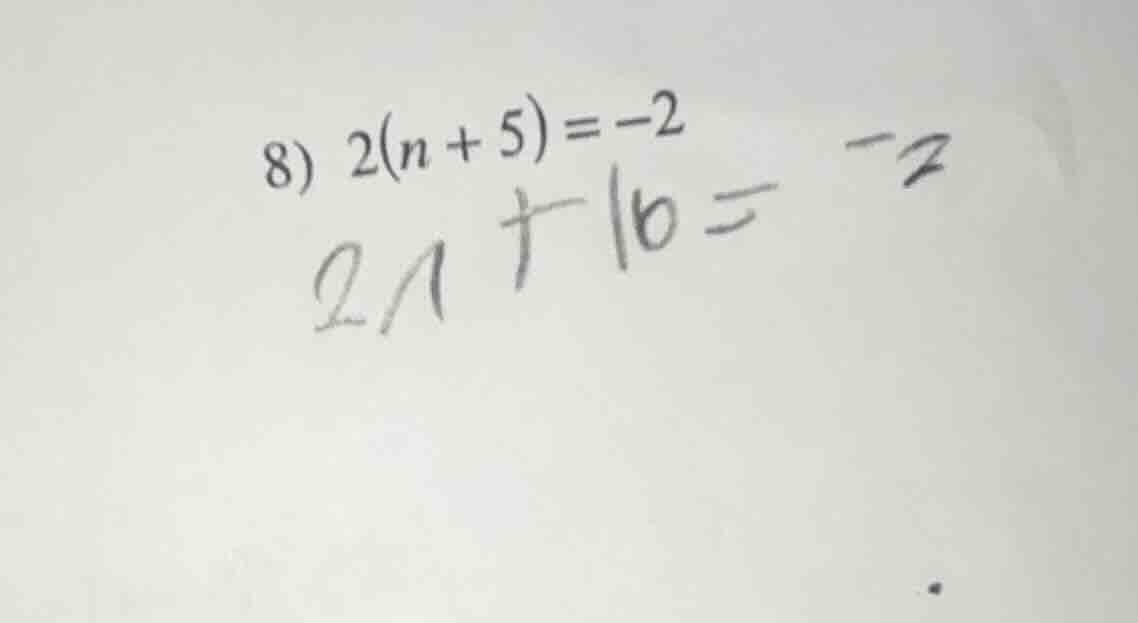 8) 2(n + 5) = -2
2n + 10 = -2